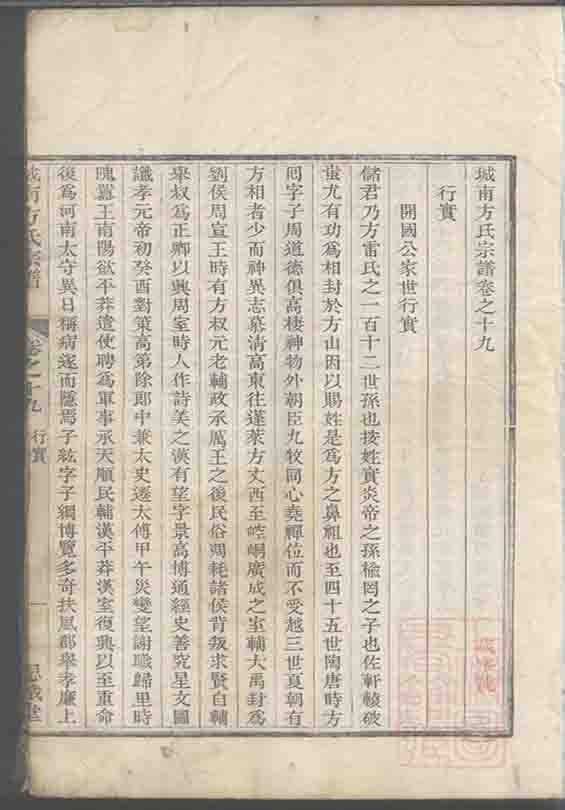 城南方氏宗譜卷之十九
行實
開國公家世行實
儲君乃方雷氏之一百十二世孫也按姓實炎帝之孫楡罔之子也佐軒轅破
蚩尤有功爲相封於方山因以賜姓是爲方之鼻祖也至四十五世陶唐時方
囘字子周道德俱高棲神物外朝臣九牧同心堯禪位而不受越三世夏朝有
方相者少而神異志慕清高東往蓬萊方丈西至崆峒廣成之室輔大禹封爲
劉侯周宣王時有方叔元老輔政承厲王之後民俗凋耗諸侯背叛求賢自輔
舉叔爲正卿以興周室時人作詩美之漢有望字景高博通經史善究星文圖
讖孝元帝初癸酉對策高第除郞中兼太史遷太傅甲午災變望謝職歸里時
隗囂王南陽欲平莽遣使聘爲軍事承天順民輔漢平莽漢室復興以至重命
後爲河南太守異日稱病遂而隱焉子紘字子綱博覽多奇扶風郡舉孝廉上
城南方氏宗譜
卷之十九
行實
一
思誠堂